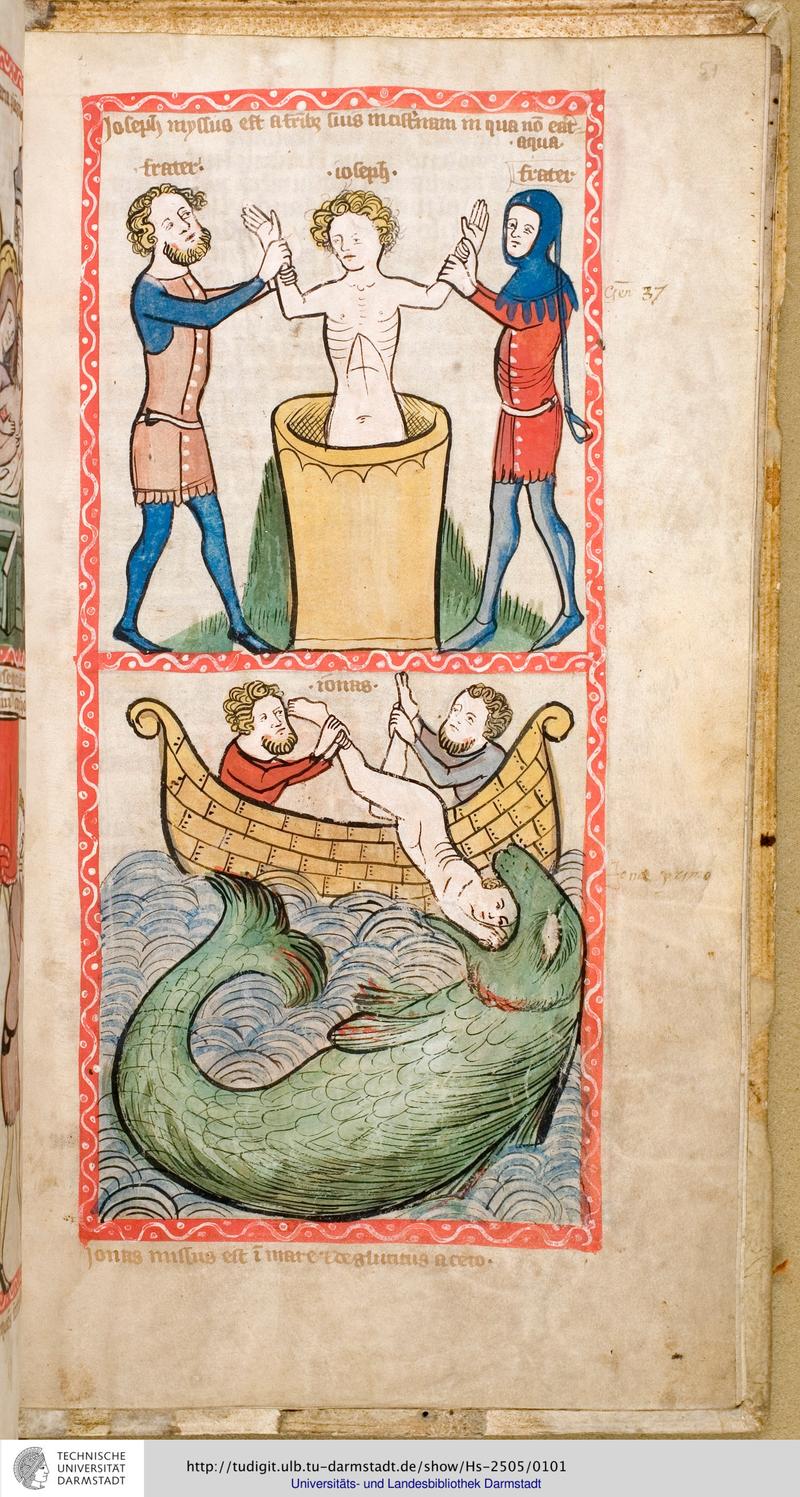 51
Joseph myssus est a frībꝫ suis in cisternam in qua nō eat
aqua
frater
ioseph
frater
Gen 37
ionas
Jona primo
Jonas missus est ī mare ⁊ deglutitus a ceto
TECHNISCHE
UNIVERSITÄT
DARMSTADT
http://tudigit.ulb.tu-darmstadt.de/show/Hs-2505/0101
Universitäts- und Landesbibliothek Darmstadt